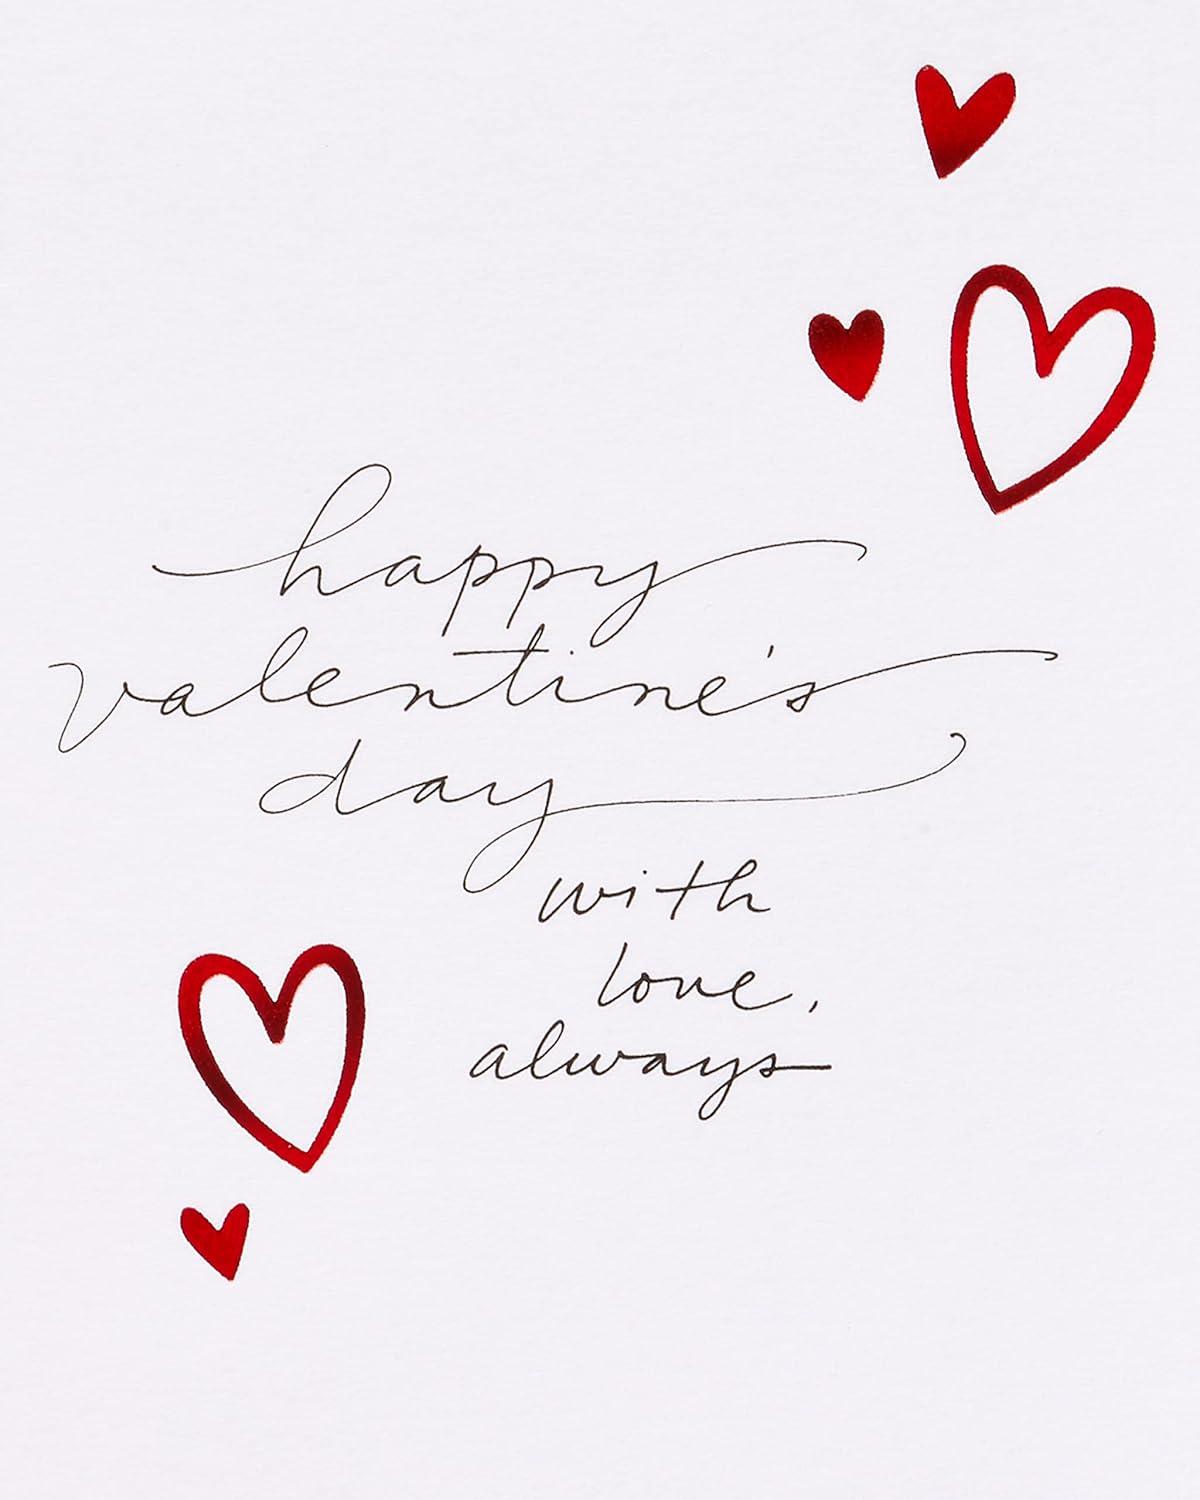 happy
valentine's
day
with
love,
always